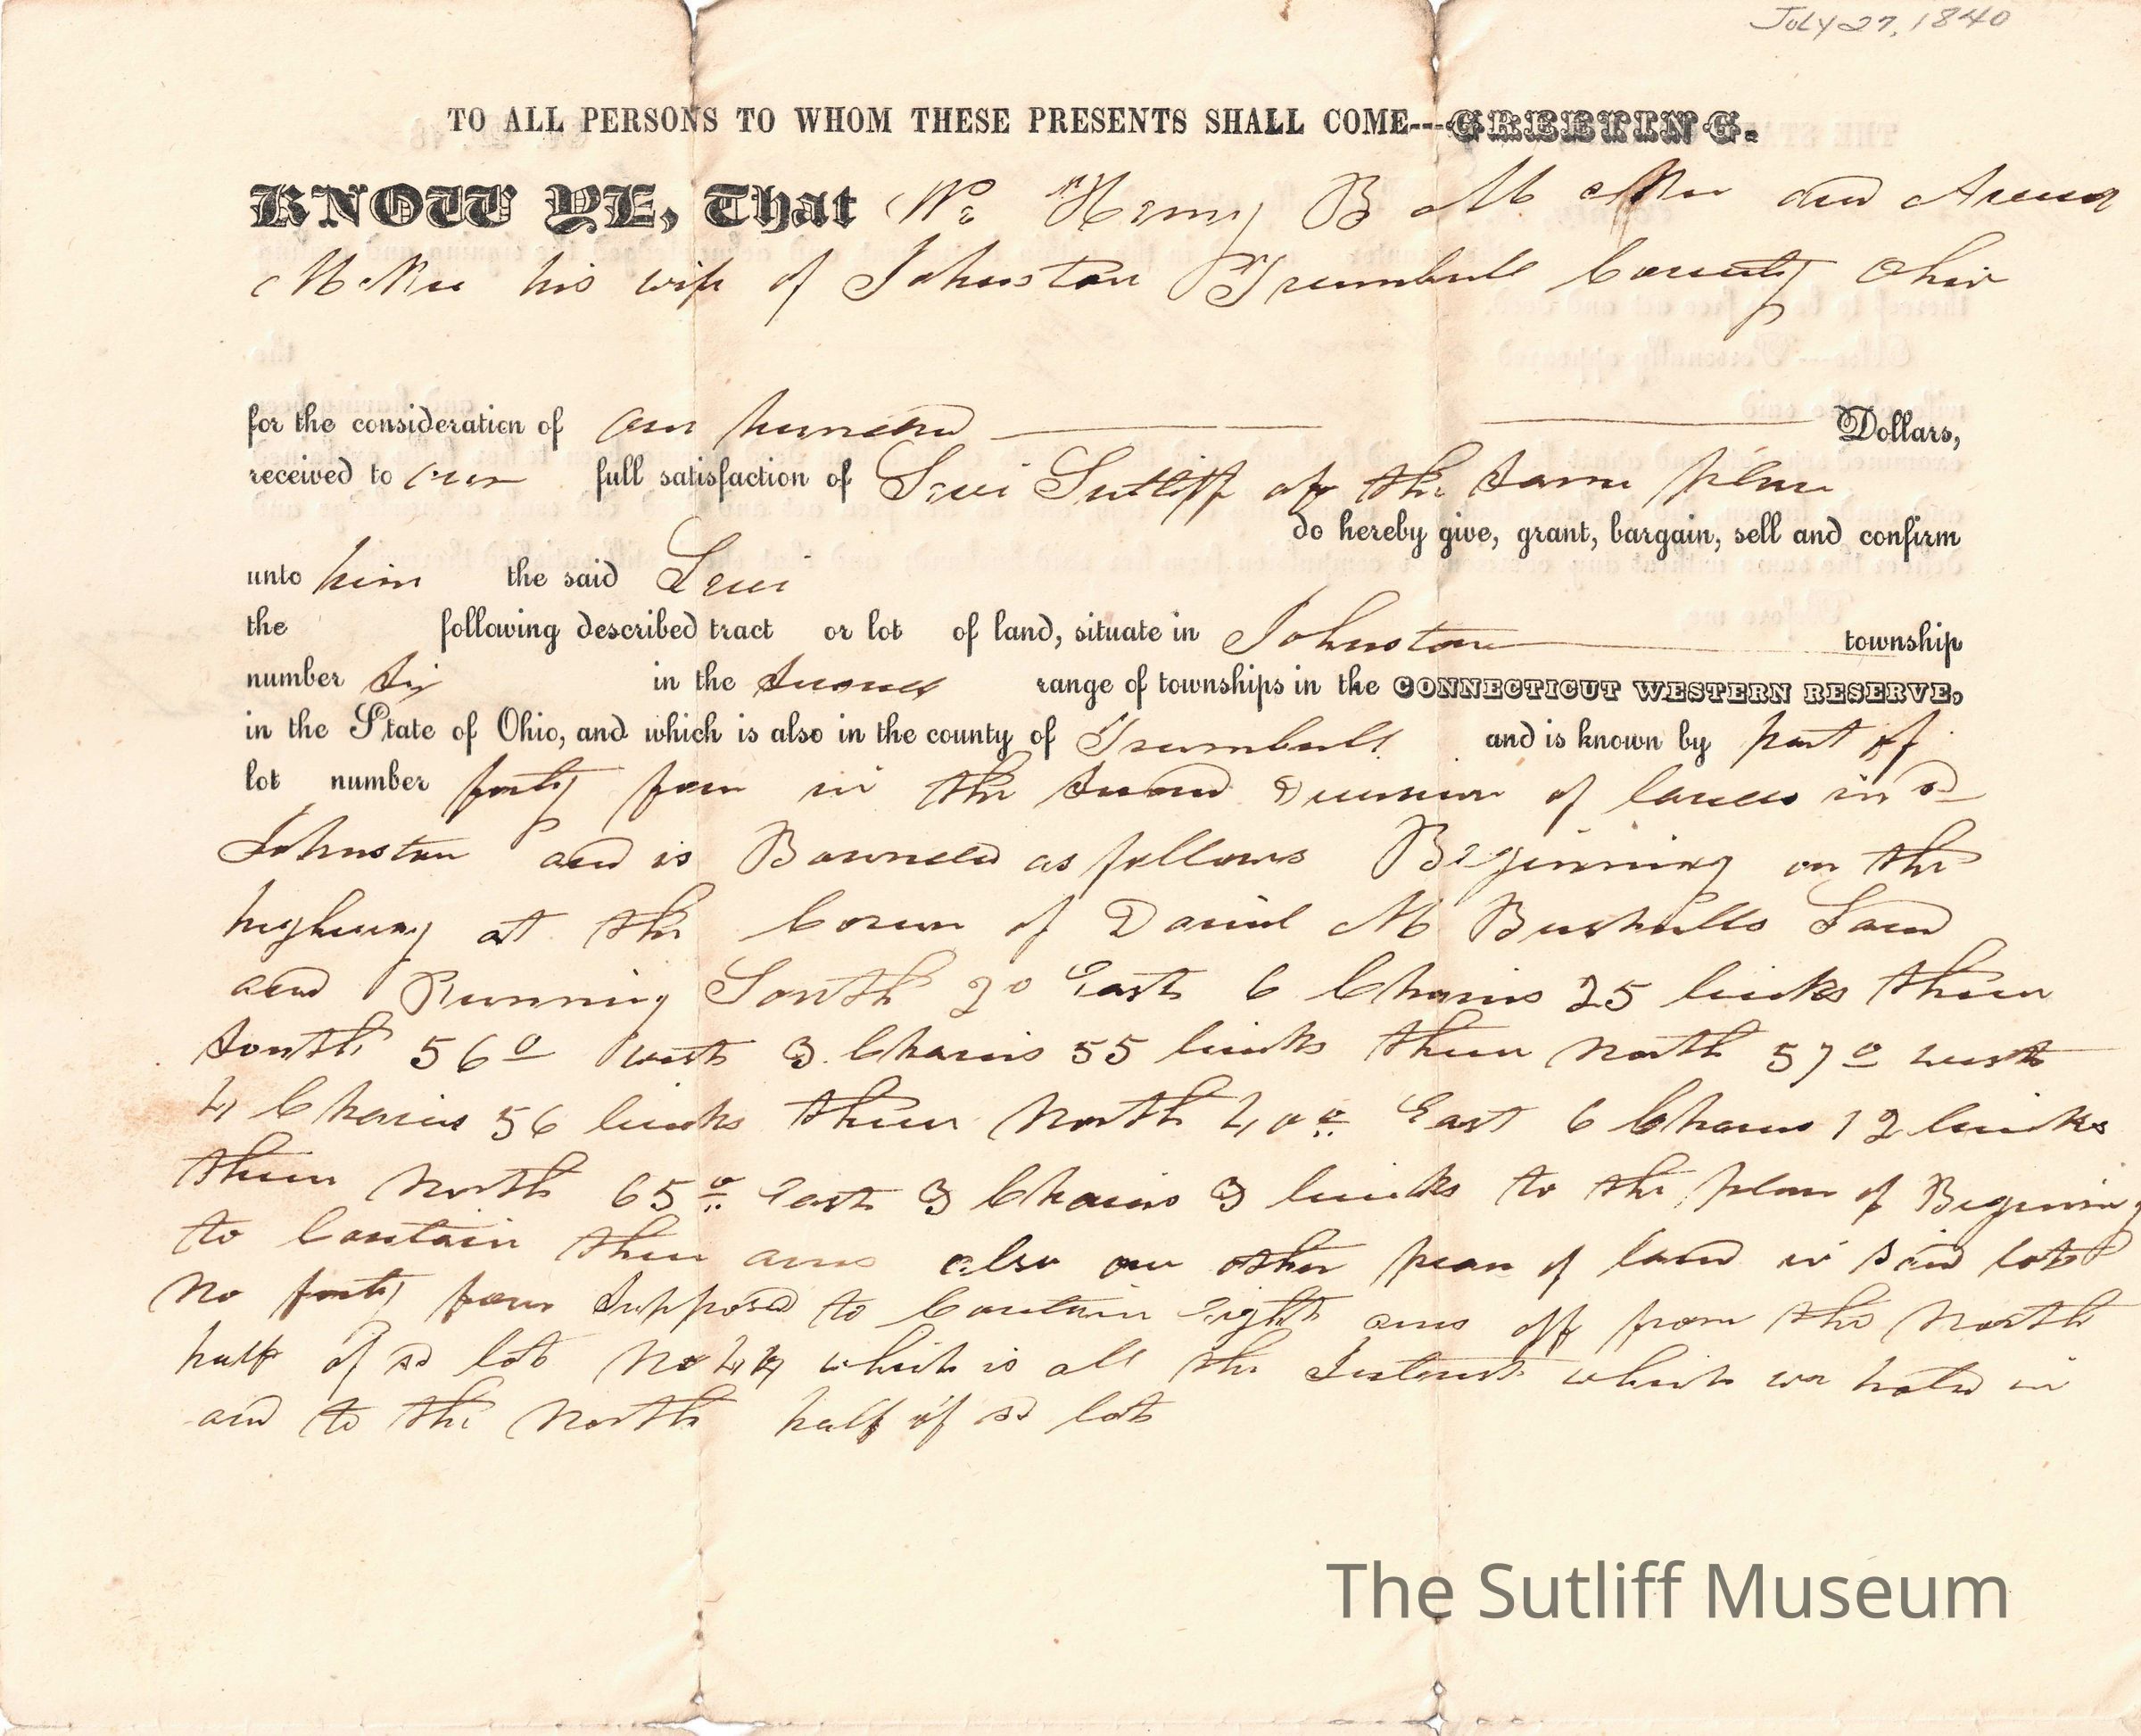 July 27, 1840
TO ALL PERSONS TO WHOM THESE PRESENTS SHALL COME---GREETING.
KNOW YE, That We Henry B McKee and
McKee his wife of Johnston Trumbull County Ohio
for the consideration of one hundred Dollars,
received to our full satisfaction of Levi Sutliff of the same place
do hereby give, grant, bargain, sell and confirm
unto him the said Levi
the following described tract or lot of land, situate in Johnston township
number Six in the Second range of townships in the CONNECTICUT WESTERN RESERVE,
in the State of Ohio, and which is also in the county of Trumbull and is known by part of
lot number forty four in the Second Division of lands in sd
Johnston and is Bounded as follows Beginning on the
highway at the Corner of Daniel M Bushnells Land
and Running South 2° East 6 Chains 25 links thence
South 56° west 3 Chains 55 links thence North 57° west
4 Chains 56 links thence North 40° East 6 Chains 12 links
thence North 65° East 3 Chains 3 links to the place of Beginning
to Contain three acres also one other peace of land in said lot
No forty four Supposed to Contain Eight acres off from the North
half of sd lot No 44 which is all the Interest which we hold in
and to the North half of sd lot
The Sutliff Museum